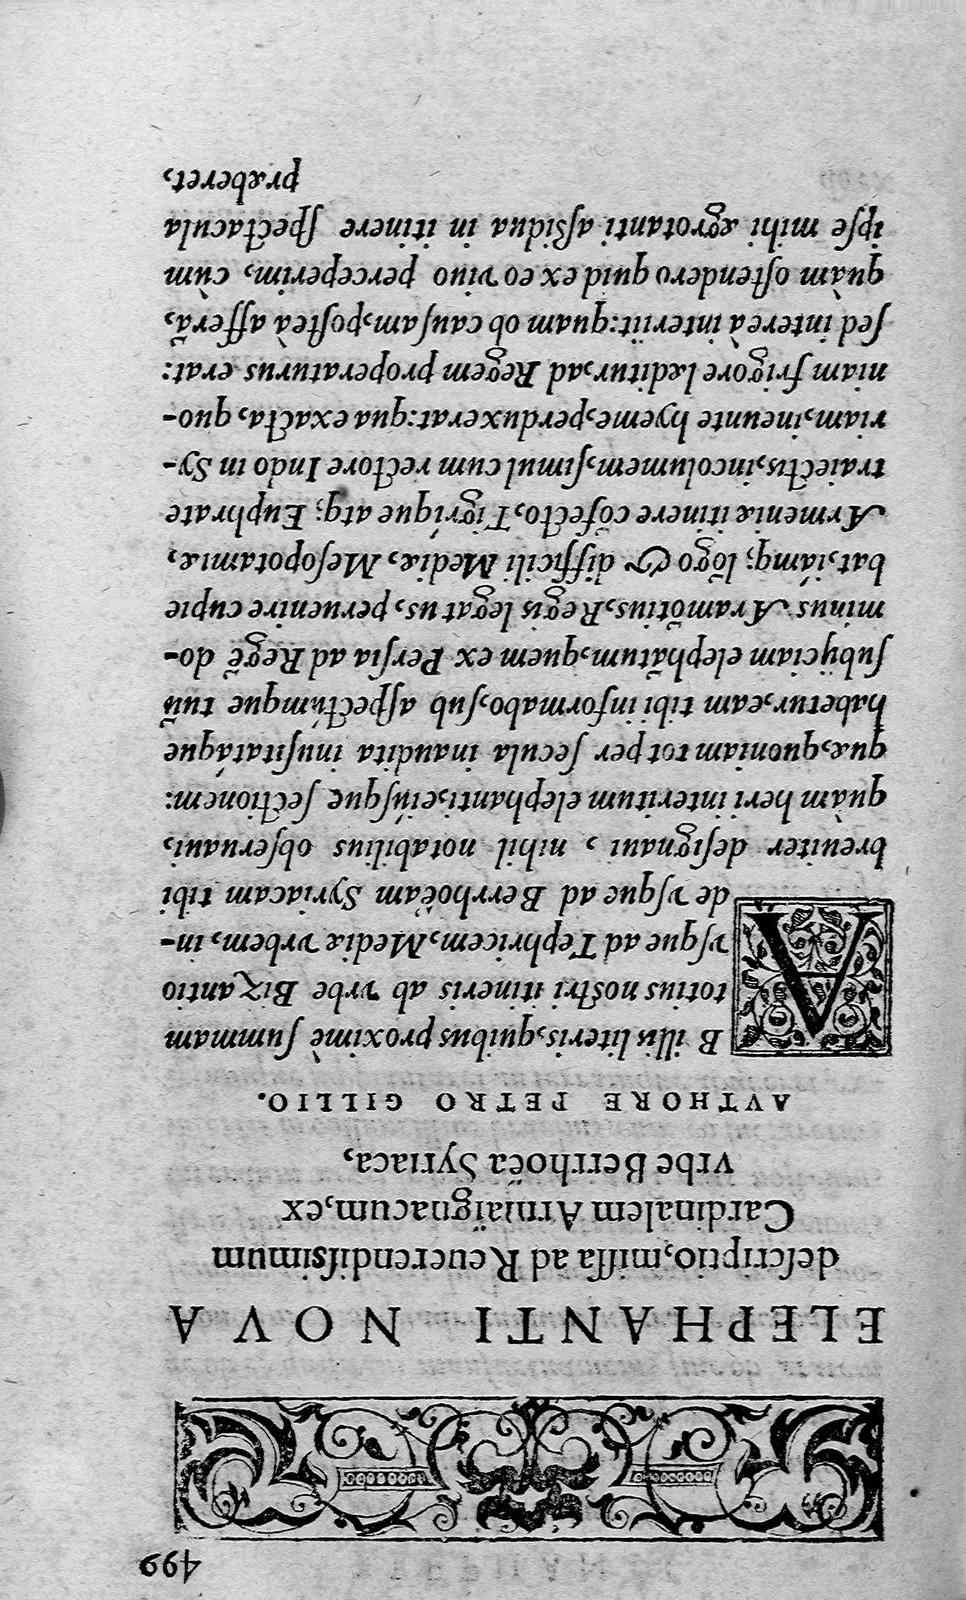 499
ELEPHANTI NOVA
deſcriptio, miſſa ad Reuerendiſsimum
Cardinalem Armaïgnacum, ex
vrbe Berrhoëa Syriaca,
AVTHORE PETRO GILLIO.
AB illis literis, quibus proximè ſummam
totius noſtri itineris ab vrbe Bizantio
vſque ad Tephricem, Mediæ vrbem, in-
de vſque ad Berrhoëam Syriacam tibi
breuiter deſignaui, nihil notabilius obſeruaui,
quàm heri interitum elephanti, eiúſque ſectionem:
quæ, quoniam tot per ſecula inaudita inuſitatáque
habetur, eam tibi informabo, ſub aſpectúmque tuũ
ſubijciam elephãtum, quem ex Perſia ad Regẽ do-
minus Aramõtius, Regis legatus, peruenire cupie
bat, iámq; lõgo & difficili Mediæ, Meſopotamiæ,
Armeniæ itinere cõfecto, Tigrique atq; Euphrate
traiectis, incolumem, ſimul cum rectore Indo in Sy-
riam, ineunte hyeme, perduxerat: qua exacta, quo-
niam frigore læditur, ad Regem properaturus erat:
ſed interea interijt: quam ob cauſam, poſtea afferã,
quàm oſtendero quid ex eo viuo perceperim, cùm
ipſe mihi ægrotanti aſsidua in itinere ſpectacula
præberet,